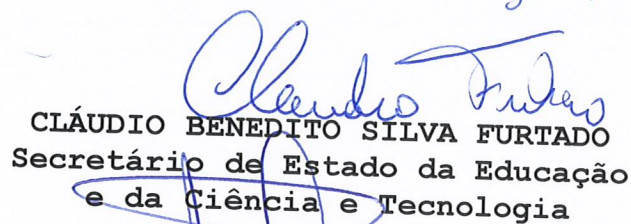 Claudio Furtado
CLÁUDIO BENEDITO SILVA FURTADO
Secretário de Estado da Educação
e da Ciência e Tecnologia